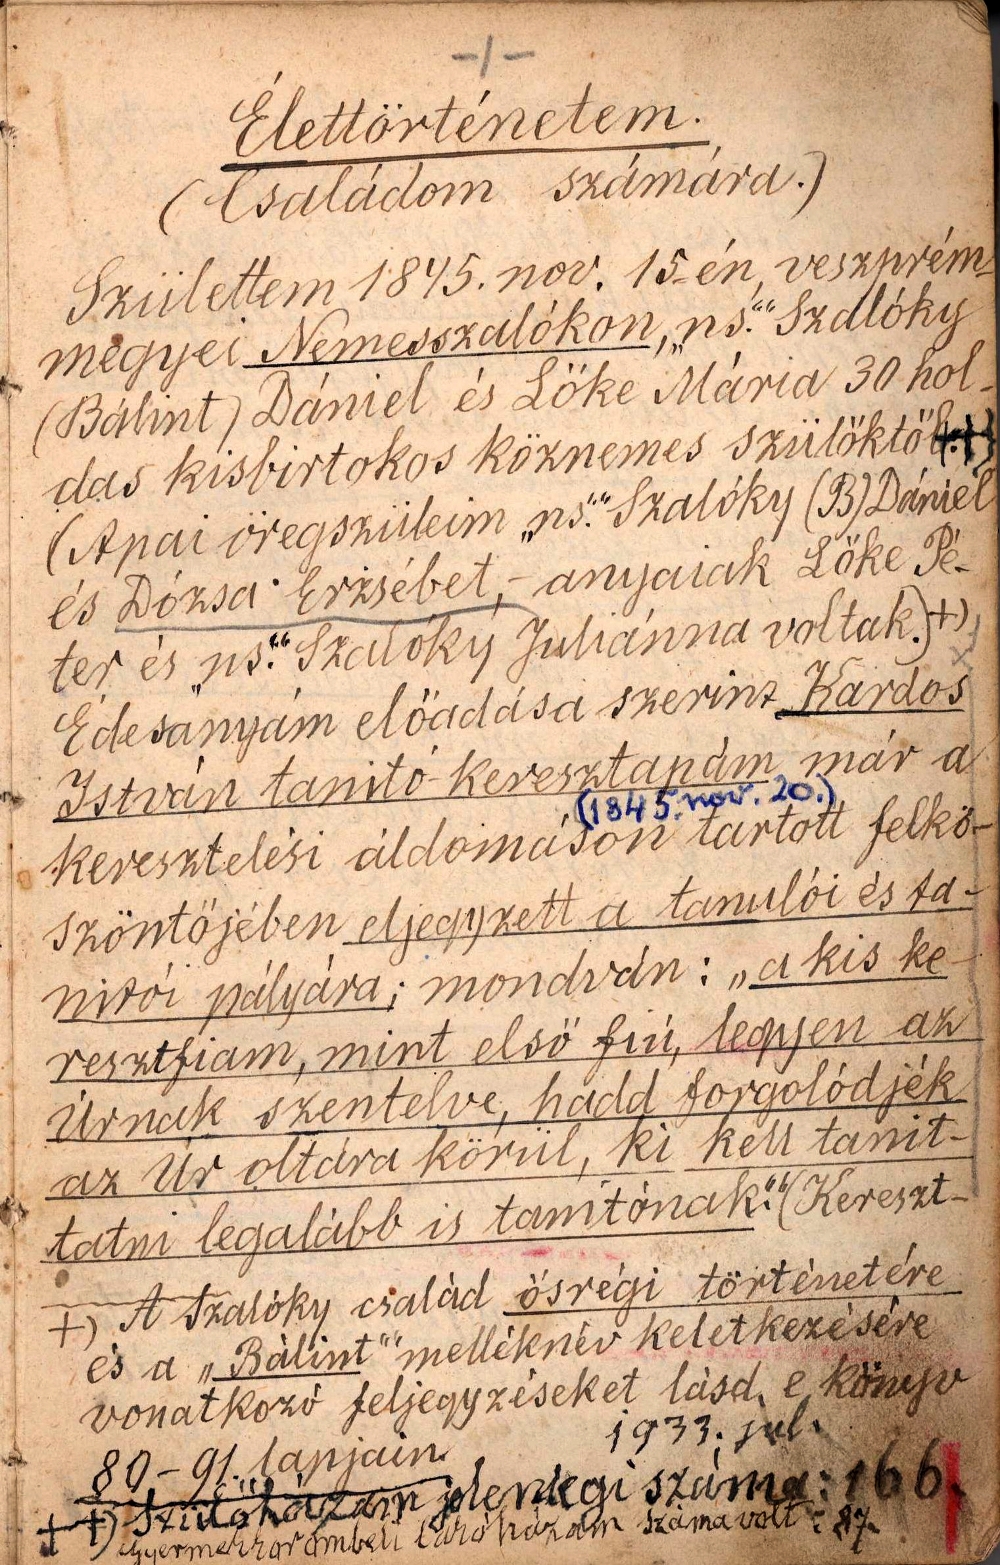 -1-
Élettörténetem.
(Családom számára.)
Születtem 1845. nov. 15-én, veszprém-
megyei Nemesszalókon, „ns.“ Szalóky
(Bálint) Dániel és Lőke Mária 30 hol-
das kisbirtokos köznemes szülőktől ++)
(Apai öregszüleim „ns.“ Szalóky (B) Dániel
és Dózsa Erzsébet, - anyaiak Lőke Pé-
ter és „ns.“ Szalóky Juliánna voltak.) +)
Édesanyám előadása szerint Kardos
István tanitó-keresztapám már a
(1845. nov. 20.)
keresztelési áldomáson tartott felkö-
szöntőjében eljegyzett a tanulói és ta-
nitói pályára; mondván: „a kis ke-
resztfiam, mint első fiú, legyen az
Úrnak szentelve, hadd forgolódjék
az Úr oltára körül, ki kell tanit-
tatni legalább is tanítónak.“ (Kereszt-
+) A Szalóky család ősrégi történetére
és a „Bálint“ melléknév keletkezésére
vonatkozó feljegyzéseket lásd e könyv
80-91. lapjain. 1933. jul.
++) Szülőházam jelenlegi száma: 166.
gyermekkorombeli lakóházam száma volt: 87.